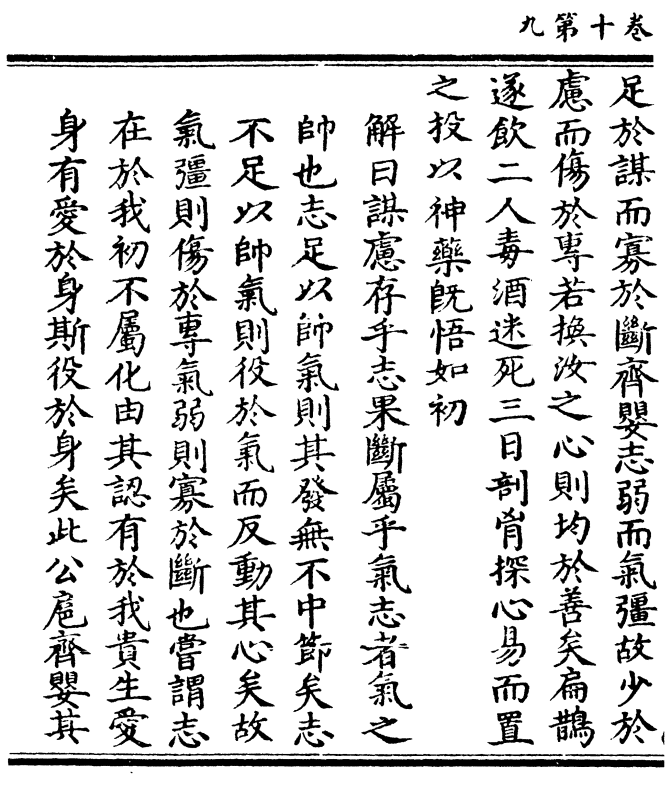 卷十第九
足於謀而寡於斷齊嬰志弱而氣彊故少於
慮而傷於專若換汝之心則均於善矣扁鵲
遂飲二人毒酒迷死三日剖胷探心易而置
之投以神藥旣悟如初
解曰謀慮存乎志果斷屬乎氣志者氣之
帥也志足以帥氣則其發無不中節矣志
不足以帥氣則役於氣而反動其心矣故
氣彊則傷於專氣弱則寡於斷也嘗謂志
在於我初不屬化由其認有於我貴生愛
身有愛於身斯役於身矣此公扈齊嬰其